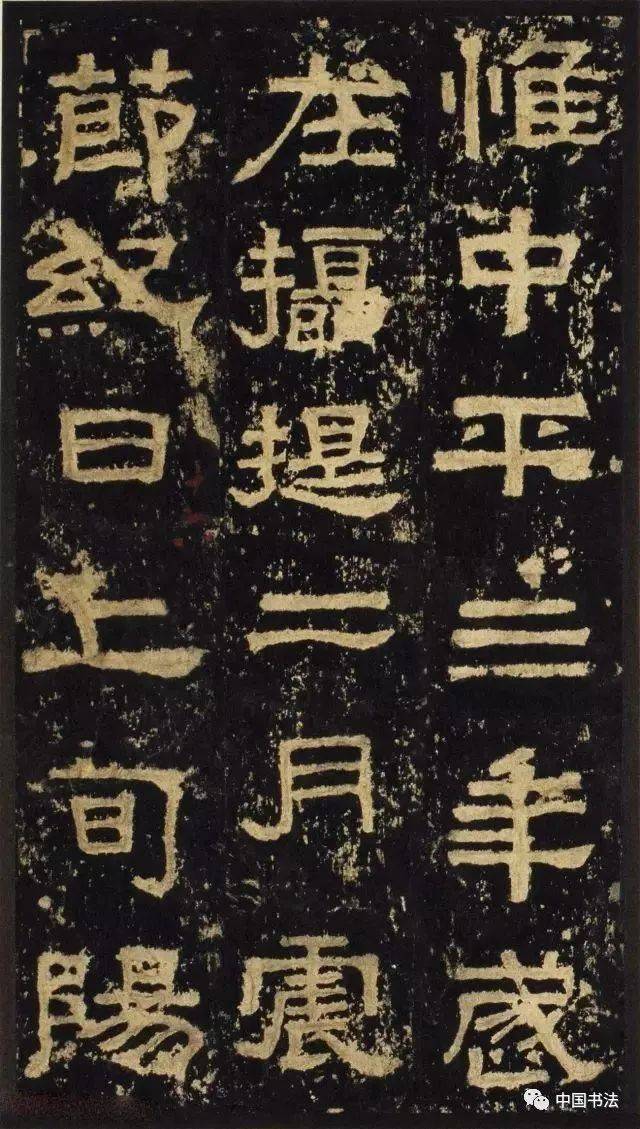 惟中平三年歲
在攝提二月震
節紀日上旬陽
中国书法